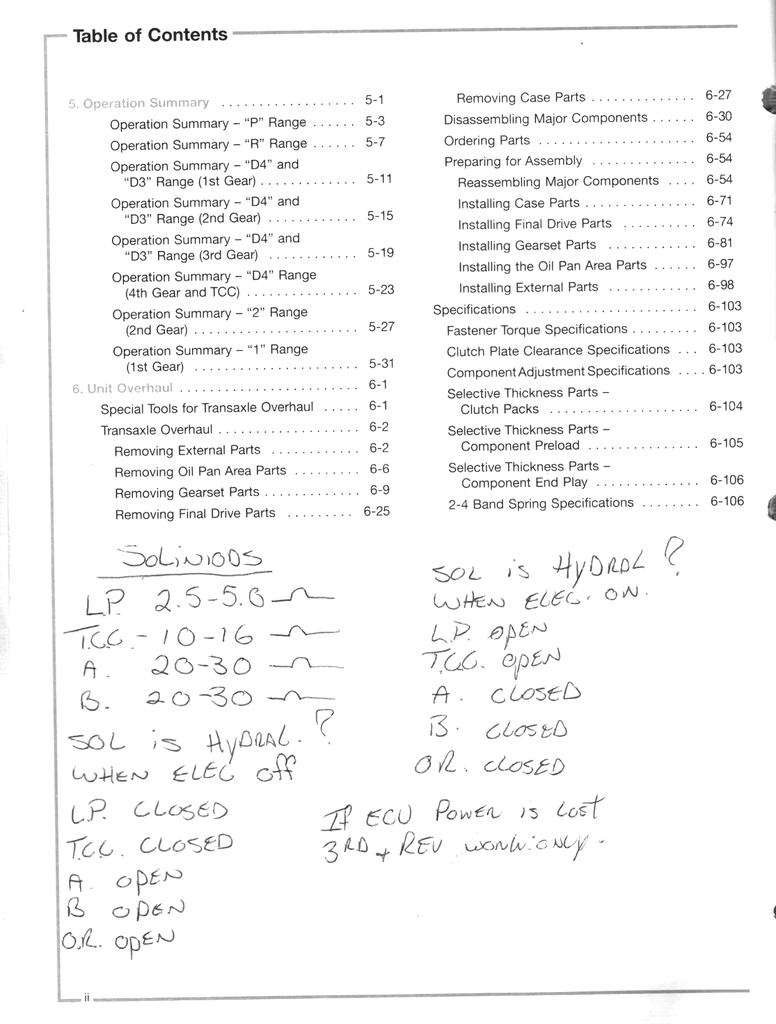 Table of Contents
5. Operation Summary . . . . . . . . . . . . . . . . . . 5-1
Operation Summary – "P" Range . . . . . . 5-3
Operation Summary – "R" Range . . . . . . 5-7
Operation Summary – "D4" and
"D3" Range (1st Gear) . . . . . . . . . . . . . 5-11
Operation Summary – "D4" and
"D3" Range (2nd Gear) . . . . . . . . . . . . 5-15
Operation Summary – "D4" and
"D3" Range (3rd Gear) . . . . . . . . . . . . 5-19
Operation Summary – "D4" Range
(4th Gear and TCC) . . . . . . . . . . . . . . . 5-23
Operation Summary – "2" Range
(2nd Gear) . . . . . . . . . . . . . . . . . . . . . . 5-27
Operation Summary – "1" Range
(1st Gear) . . . . . . . . . . . . . . . . . . . . . . 5-31
6. Unit Overhaul . . . . . . . . . . . . . . . . . . . . . . . . 6-1
Special Tools for Transaxle Overhaul . . . . . 6-1
Transaxle Overhaul . . . . . . . . . . . . . . . . . . . 6-2
Removing External Parts . . . . . . . . . . . . . 6-2
Removing Oil Pan Area Parts . . . . . . . . . 6-6
Removing Gearset Parts . . . . . . . . . . . . . 6-9
Removing Final Drive Parts . . . . . . . . . 6-25
Removing Case Parts . . . . . . . . . . . . . . 6-27
Disassembling Major Components . . . . . . 6-30
Ordering Parts . . . . . . . . . . . . . . . . . . . . . 6-54
Preparing for Assembly . . . . . . . . . . . . . . 6-54
Reassembling Major Components . . . . 6-54
Installing Case Parts . . . . . . . . . . . . . . . 6-71
Installing Final Drive Parts . . . . . . . . . . 6-74
Installing Gearset Parts . . . . . . . . . . . . 6-81
Installing the Oil Pan Area Parts . . . . . . 6-97
Installing External Parts . . . . . . . . . . . . 6-98
Specifications . . . . . . . . . . . . . . . . . . . . . . . 6-103
Fastener Torque Specifications . . . . . . . . . 6-103
Clutch Plate Clearance Specifications . . . 6-103
Component Adjustment Specifications . . . . 6-103
Selective Thickness Parts –
Clutch Packs . . . . . . . . . . . . . . . . . . . . 6-104
Selective Thickness Parts –
Component Preload . . . . . . . . . . . . . . . 6-105
Selective Thickness Parts –
Component End Play . . . . . . . . . . . . . . 6-106
2-4 Band Spring Specifications . . . . . . . . 6-106
SOLiNIODS
LP. 2.5-5.0
T.C.C. - 10-16
A. 20-30
B. 20-30
SOL is HyDRAL. ?
WHEN ELEC off
L.P. CLOSED
T.C.C. CLOSED
A. OPEN
B OPEN
O.R. OPEN
SOL is HyDRAL ?
WHEN ELEC. ON.
L.P. OPEN
T.C.C. OPEN
A. CLOSED
B. CLOSED
O R. CLOSED
IF ECU POWER is LOST
3RD + REV WORK ONLY.
ii